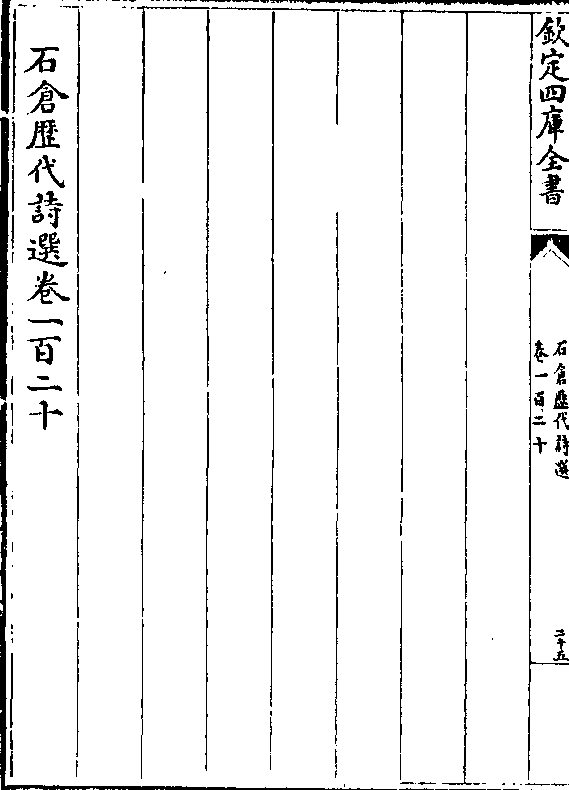 欽定四庫全書
石倉歷代詩選
卷一百二十
二十五
石倉歷代詩選卷一百二十